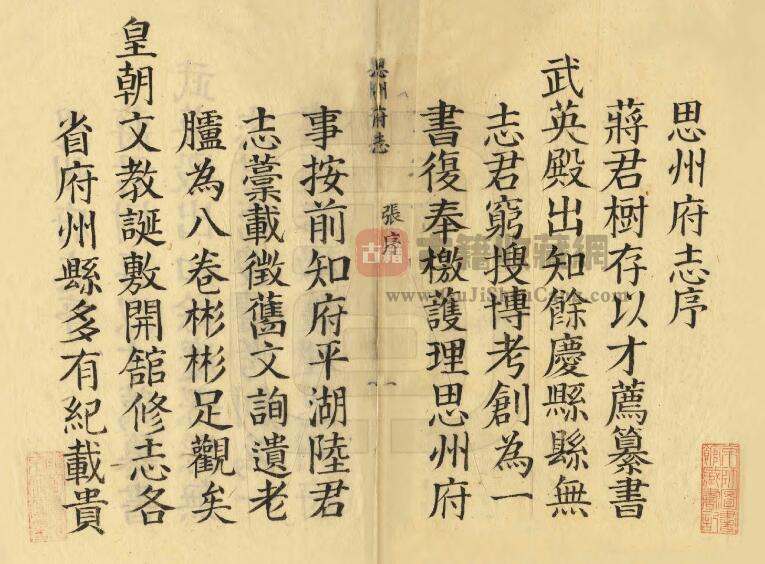 思州府志序
蔣君樹存以才薦纂書
武英殿出知餘慶縣縣無
志君窮搜博考創為一
書復奉檄護理思州府
思州府志
張序
一
事按前知府平湖陸君
志藁載徵舊文詢遺老
臚為八卷彬彬足觀矣
皇朝文教誕敷開舘修志各
省府州縣多有紀載貴
古籍